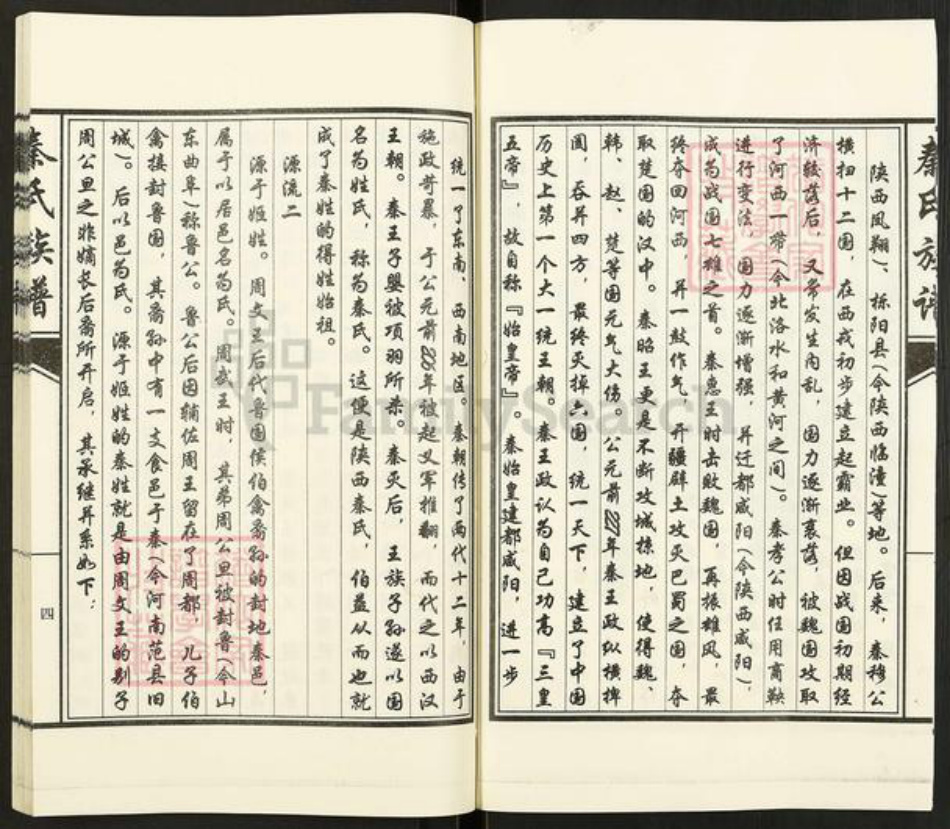 秦氏族谱
陕西凤翔）、栎阳县（今陕西临潼）等地。后来，秦穆公
横扫十二国，在西戎初步建立起霸业。但因战国初期经
济较落后，又常发生内乱，国力逐渐衰落，被魏国攻取
了河西一带（今北洛水和黄河之间）。秦孝公时任用商鞅
进行变法，国力逐渐增强，并迁都咸阳（今陕西咸阳），
成为战国七雄之首。秦惠王时击败魏国，再振雄风，最
终夺回河西，并一鼓作气，开疆辟土攻灭巴蜀之国，夺
取楚国的汉中。秦昭王更是不断攻城掠地，使得魏、
韩、赵、楚等国元气大伤。公元前年秦王政纵横捭
阖，吞并四方，最终灭掉六国，统一天下，建立了中国
历史上第一个大一统王朝。秦王政认为自己功高『三皇
五帝』，故自称『始皇帝』。秦始皇建都咸阳，进一步
统一了东南、西南地区。秦朝传了两代十二年，由于
施政苛暴，于公元前年被起义军推翻，而代之以西汉
王朝。秦王子婴被项羽所杀。秦灭后，王族子孙遂以国
名为姓氏，称为秦氏。这便是陕西秦氏，伯益从而也就
成了秦姓的得姓始祖。
源流二
源于姬姓。周文王后代鲁国侯伯禽裔孙的封地秦邑，
属于以居邑名为氏。周武王时，其弟周公旦被封鲁（今山
东曲阜）称鲁公。鲁公后因辅佐周王留在了周都，儿子伯
禽接封鲁国，其裔孙中有一支食邑于秦（今河南范县旧
城）。后以邑为氏。源于姬姓的秦姓就是由周文王的别子
周公旦之非嫡长后裔所开启，其承继并系如下：
秦氏族谱
四
FamilySearch